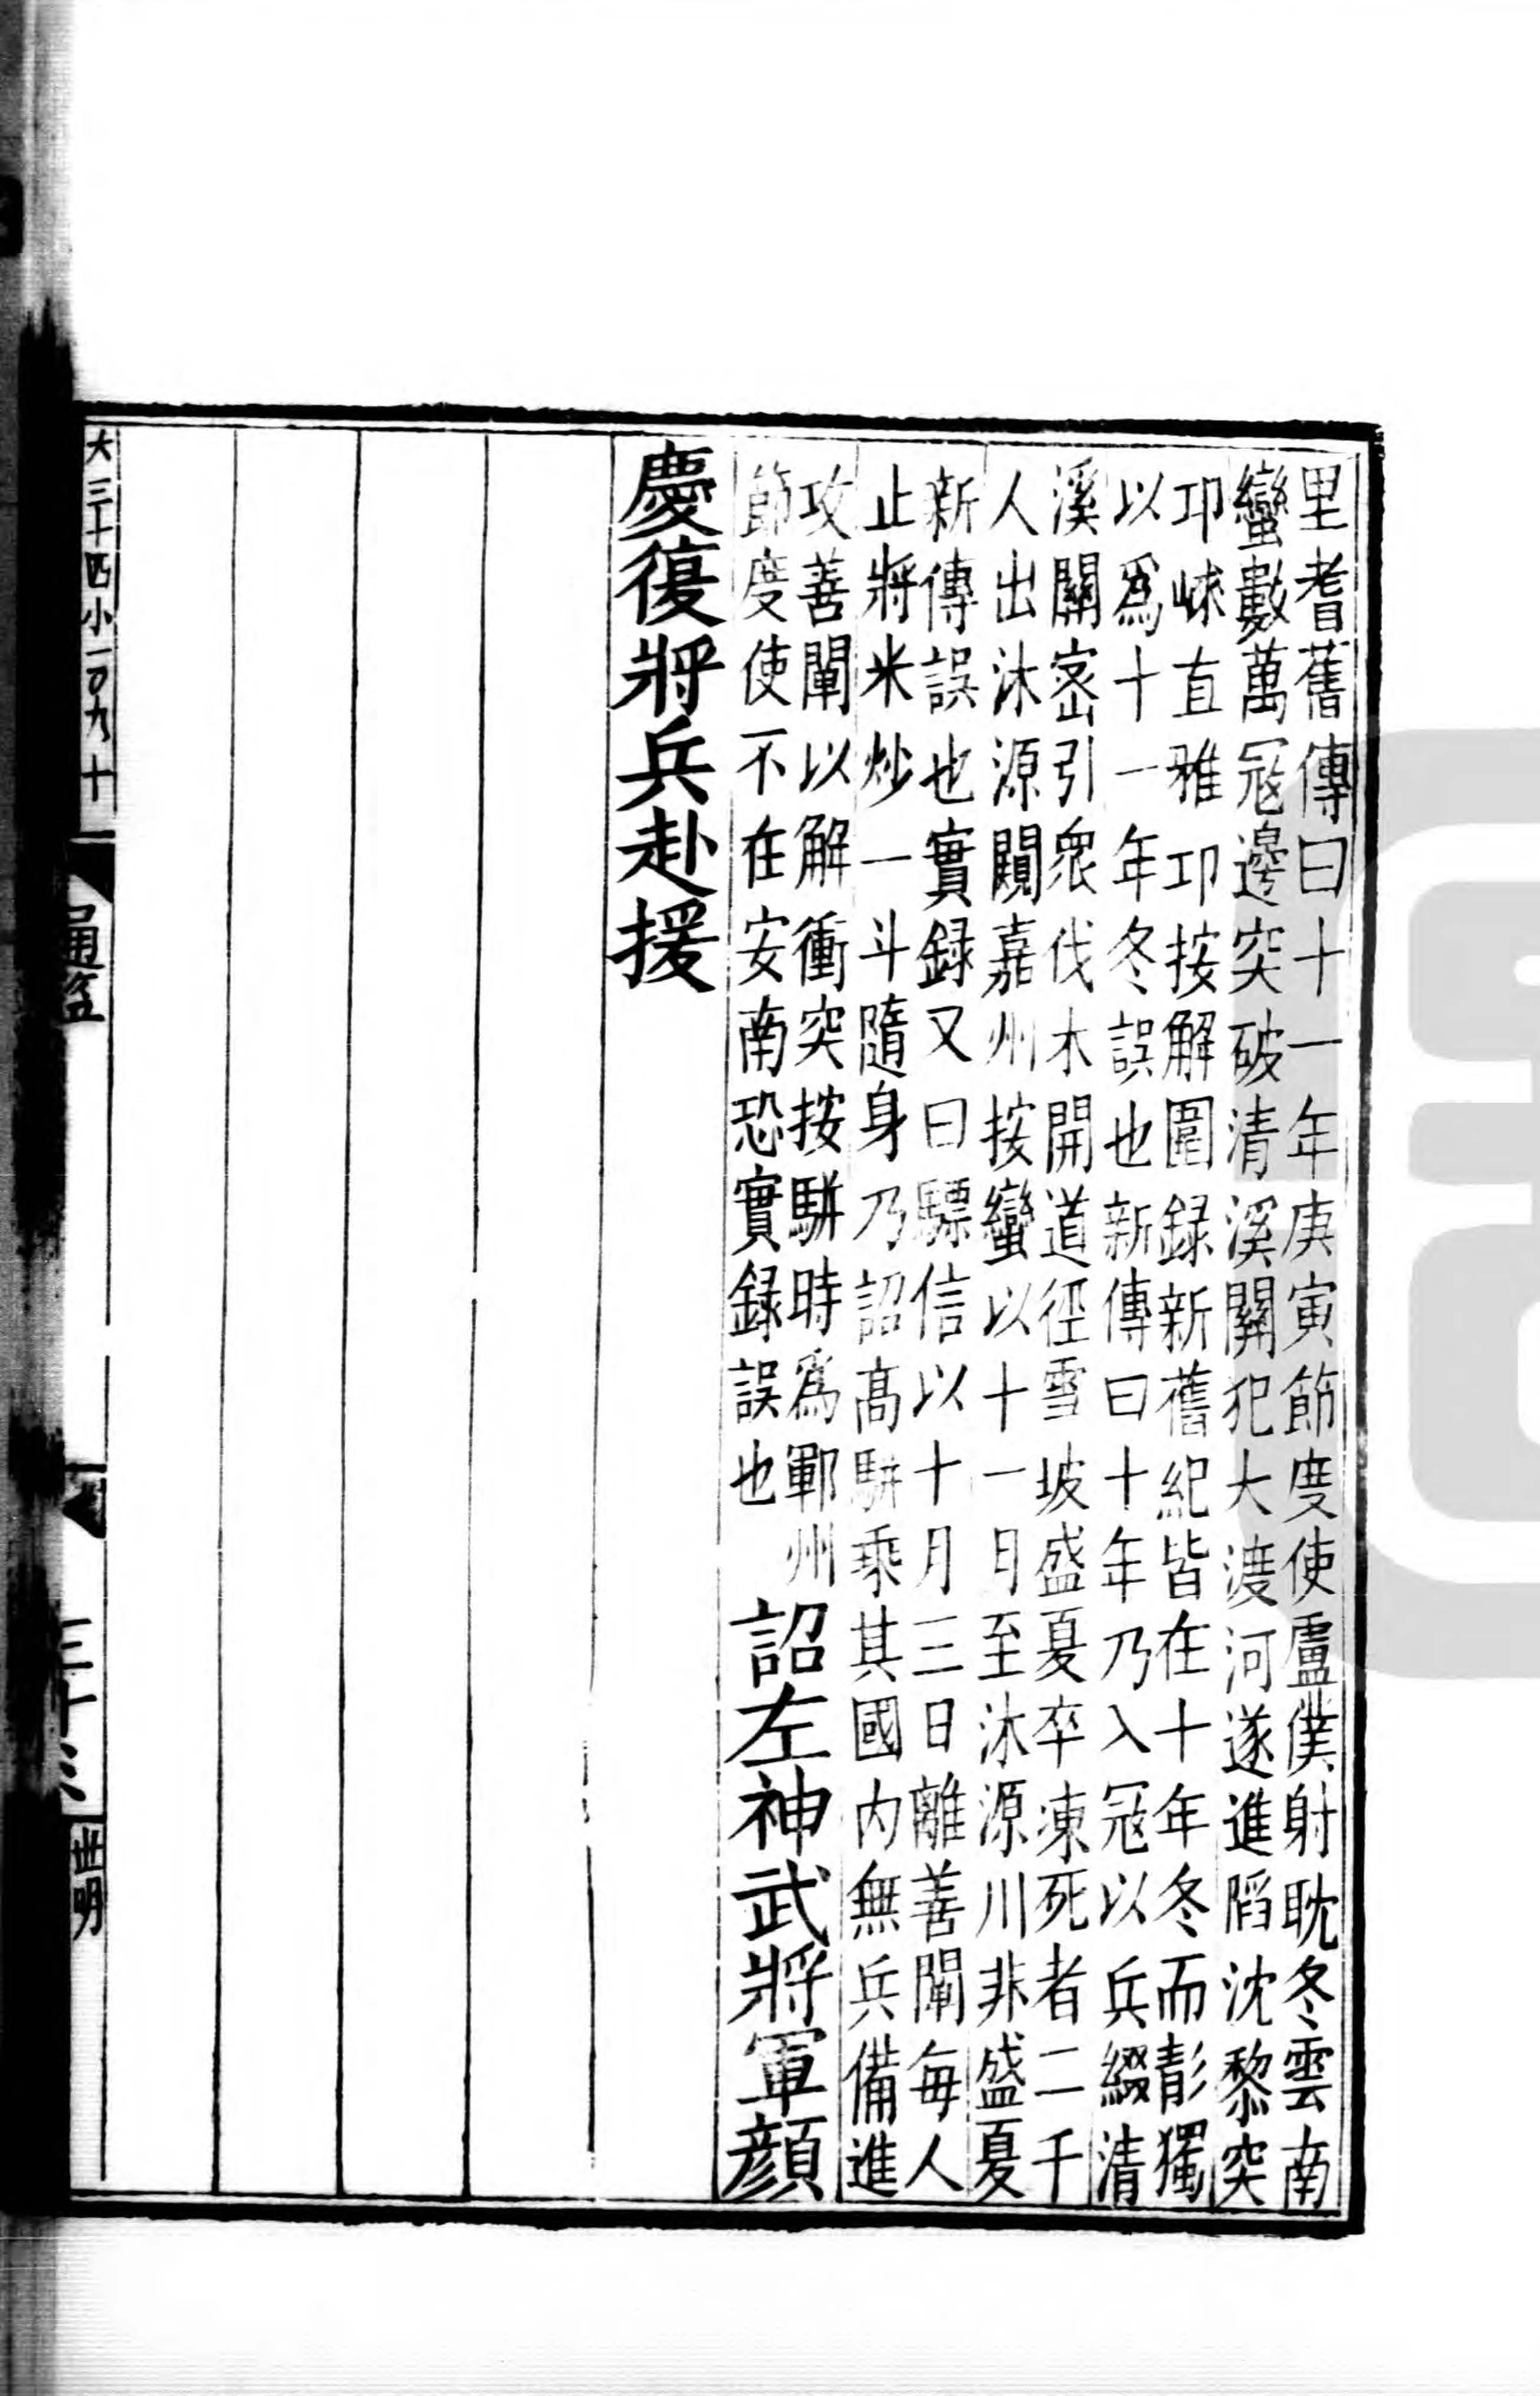 里耆舊傳曰十一年庚寅節度使盧僕射耽冬雲南
蠻數萬冦邊突破清溪關犯大渡河遂進䧟沈黎突
卭崍直雅卭按解圍録新舊紀皆在十年冬而彭獨
以爲十一年冬誤也新傳曰十年乃入冦以兵綴清
溪關宻引衆伐木開道徑雪坡盛夏卒凍死者二千
人出沐源闚嘉州按蠻以十一月至沐源川非盛夏
新傳誤也實録又曰驃信以十月三日離善闡每人
止將米炒一斗隨身乃詔髙駢乘其國內無兵備進
攻善闡以解衝突按駢時爲鄆州
節度使不在安南恐實録誤也
詔左神武將軍顔
慶復將兵赴援
大三十四小三百九十
通鉴
三十三
世明